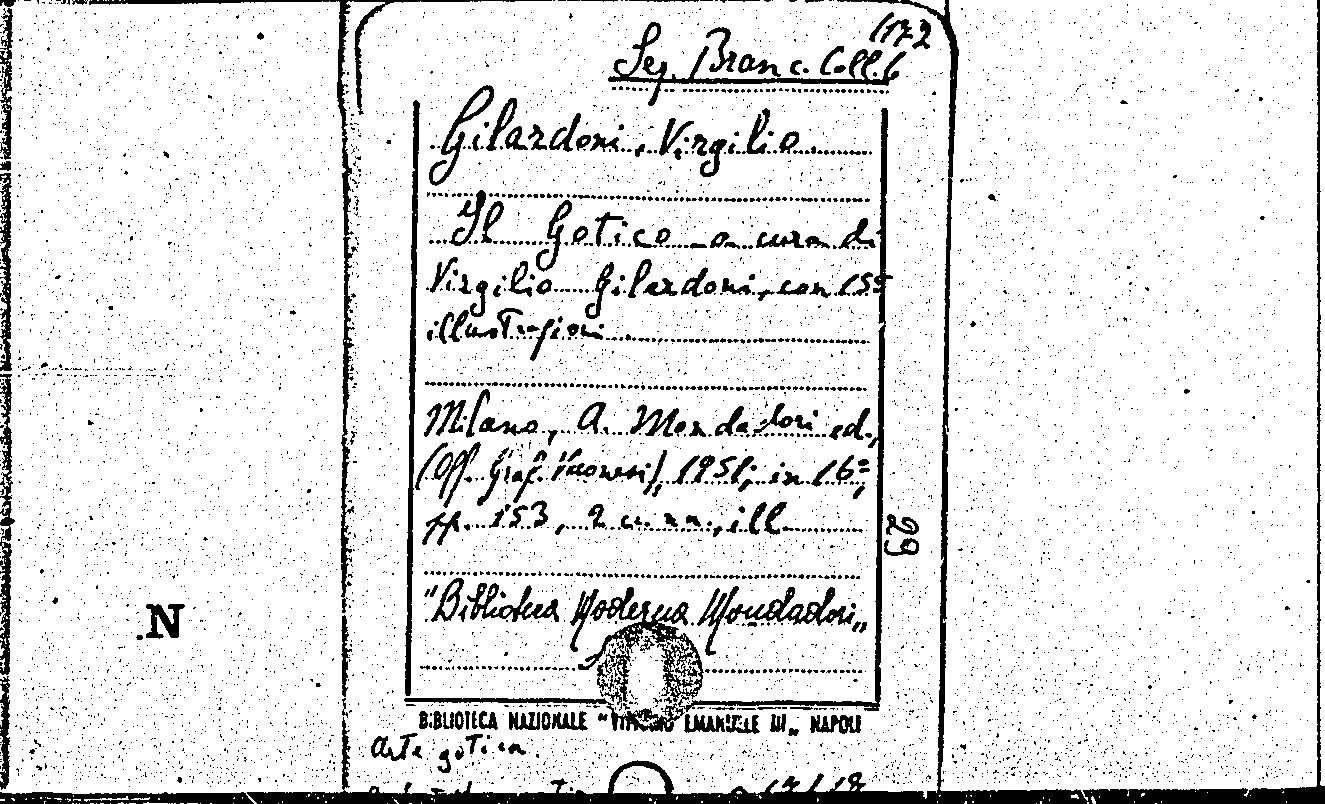 (172
Sez. Branc. Coll. 6
Gilardoni, Virgilio.
Il Gotico a cura di
Virgilio Gilardoni, con 155
illustrazioni.
Milano, A. Mondadori ed.,
(Off. Graf. Veronesi), 1951; in 16°,
pp. 153, 2 cc. nn., ill.
"Biblioteca Moderna Mondadori„
BIBLIOTECA NAZIONALE "VITTORIO EMANUELE III„ NAPOLI
Arte gotica.
.N